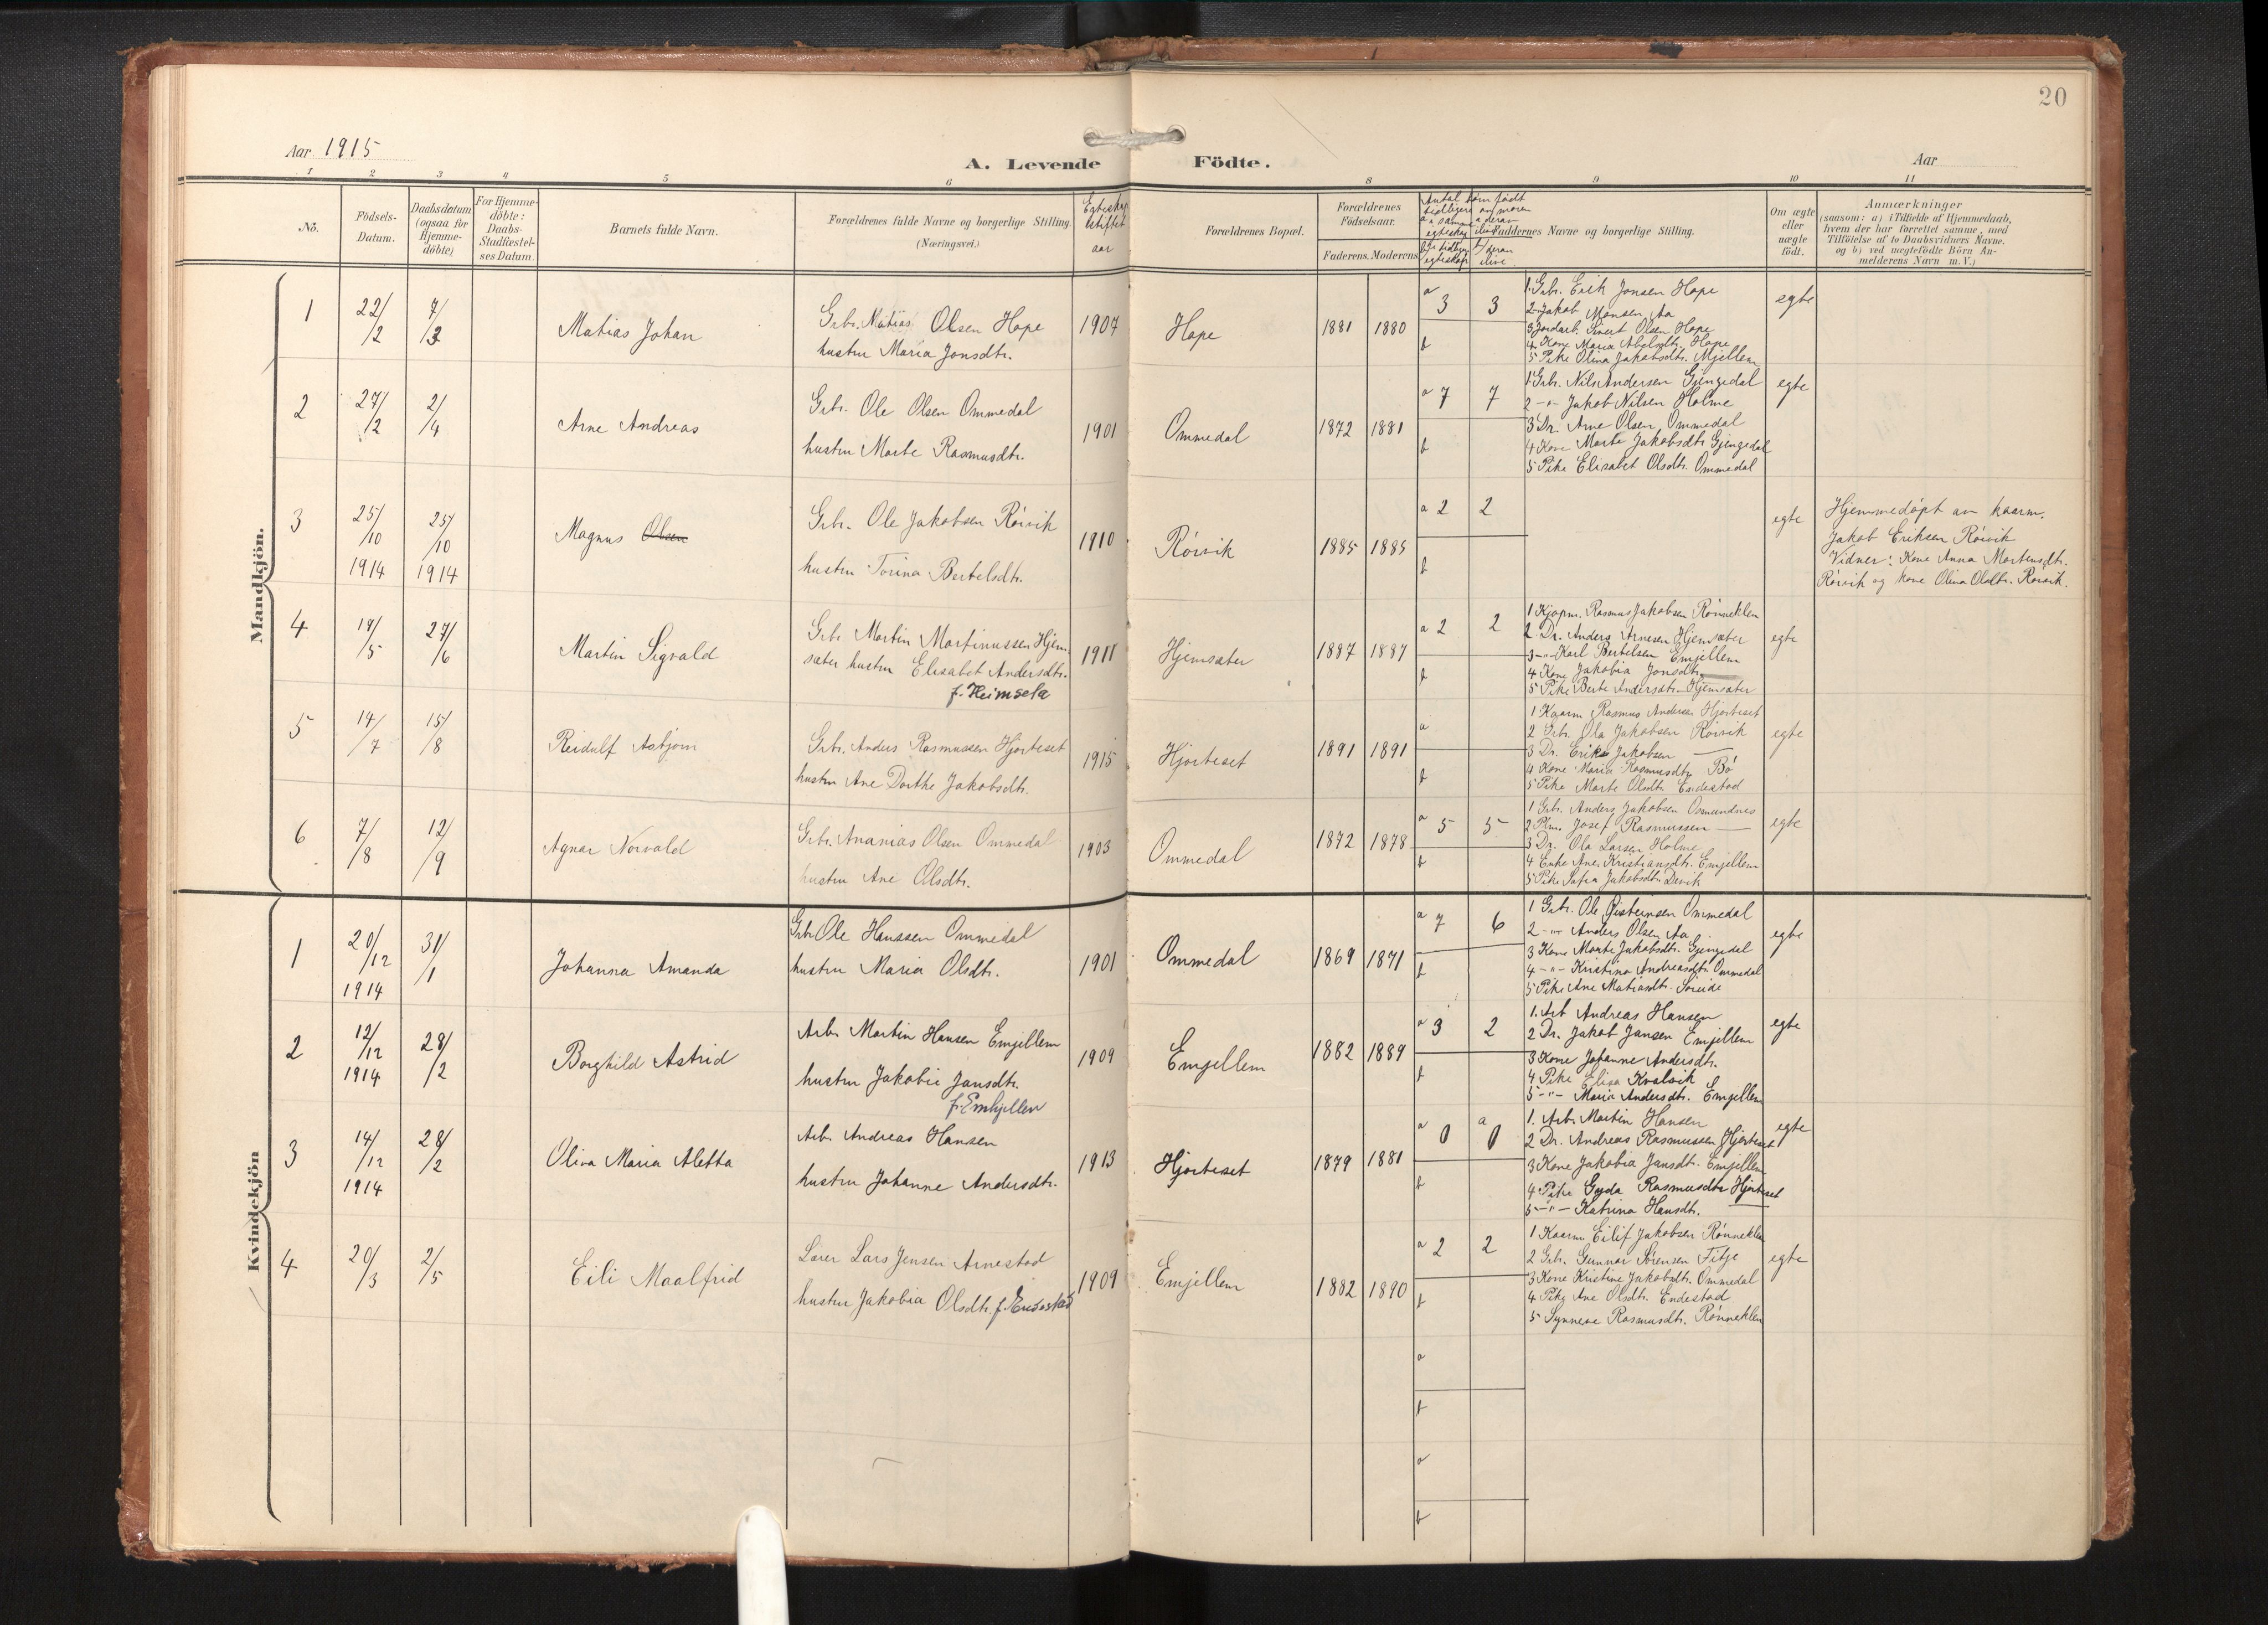 20
Aar 1915
A. Levende Födte.
Aar
1 2 3 4 5 6 8 9 10 11
Nö.
Födsels-
Datum.
Daabsdatum
(ogsaa for
Hjemme-
döbte)
For Hjemme-
döbte:
Daabs-
Stadfæstel-
ses Datum.
Barnets fulde Navn.
Forældrenes fulde Navne og borgerlige Stilling
(Næringsvei.)
Egteskap
stiftet
aar
Forældrenes Bopæl.
Forældrenes
Födselsaar.
Faderens. Moderens
Faddernes Navne og borgerlige Stilling.
Om ægte
eller
uægte
födt.
Anmærkninger
(saasom: a) i Tilfælde af Hjemmedaab,
hvem der har forrettet samme, med
Tilföielse af to Daabsvidners Navne.
og b) ved uægtefödte Börn An-
melderens Navn m. V.)
Mandkjön.
1
22/2
7/3
Matias Johan
Grbr. Matias Olsen Hope
hustru Maria Jonsdtr.
1907
Hope
1881 1880
a 3 3
b
1. Grbr. Erik Jonsen Hope
2 Jakob Monsen Aa
3 Jordarb. Sivert Olsen Hope
4. Kone Maria Abelsdtr. Hope
5 Pike Olina Jakobsdtr. Mjellem
egte
2
27/2
2/4
Arne Andreas
Grbr. Ole Olsen Ommedal
hustru Marte Rasmusdtr.
1901
Ommedal
1872 1881
a 7 7
b
1 Grbr. Nils Andersen Gjengedal
2 -"- Jakob Nilsen Holme
3 Dr. Arne Olsen Ommedal
4 Kone Marte Jakobsdtr Gjengedal
5 Pike Elisabet Olsdtr. Ommedal
egte
3
25/10
1914
25/10
1914
Magnus Olsen
Grbr. Ole Jakobsen Röivik
hustru Torina Bertelsdtr.
1910
Röivik
1885 1885
a 2 2
b
egte
Hjemmedöpt av kaarm.
Jakob Eriksen Röivik
Vidner: Kone Anna Mortensdtr.
Röivik og kone Olina Olsdtr. Röivik.
4
19/5
27/6
Martin Sigvald
Grbr Martin Martinussen Hjem-
sæter hustru Elisabet Andersdtr.
f. Heimseta
1911
Hjemsæter
1887 1887
a 2 2
b
1 Kjöpm. Rasmus Jakobsen Rönneklen
2 Dr. Anders Arnesen Hjemsæter
3 -"- Karl Bertelsen Emjellem
4 Kone Jakobia Jonsdtr.
5 Pike Berte Andersdtr. Hjemsæter
egte
5
14/7
15/8
Reidulf Asbjörn
Grbr. Anders Rasmussen Hjorteset
hustru Ane Dorthe Jakobsdtr.
1915
Hjorteset
1891 1891
a
b
1 Kaarm Rasmus Andersen Hjorteset
2 Grbr. Ola Jakobsen Röivik
3 Dr. Erik Jakobsen —
4 Kone Maria Rasmusdtr Bö
5 Pike Marte Olsdtr Endestad
egte
6
7/8
12/9
Agnar Norvald
Grbr. Ananias Olsen Ommedal
hustru Ane Olsdtr.
1903
Ommedal
1872 1878
a 5 5
b
1 Grbr. Anders Jakobsen Osmundnes
2 Plm. Josef Rasmussen —
3 Dr. Ola Larsen Holme
4 Enke Ane Kristiansdtr. Emjellem
5 Pike Sofia Jakobsdtr Devik
egte
Kvindekjön
1
20/12
1914
31/1
Johanna Amanda
Grbr Ole Hanssen Ommedal
hustru Maria Olsdtr.
1901
Ommedal
1869 1871
a 7 6
b
1 Grbr. Ole Øisteinsen Ommedal
2 -"- Anders Olsen Aa
3 Kone Marte Jakobsdtr. Gjengedal
4 -"- Kristina Andreasdtr. Ommedal
5 Pike Ane Matiasdtr. Söreide
egte
2
12/12
1914
28/2
Borghild Astrid
Arb. Martin Hansen Emjellem
hustru Jakobia Jansdtr.
f. Emhjellen
1909
Emjellem
1882 1889
a 3 2
b
1. Arb Andreas Hansen
2 Dr. Jakob Jansen Emjellem
3 Kone Johanne Andersdtr.
4 Pike Elisa Kvalvik
5 -"- Maria Andersdtr. Emjellem
egte
3
14/12
1914
28/2
Oliva Maria Aletta
Arb. Andreas Hansen
hustru Johanne Andersdtr.
1913
Hjorteset
1879 1881
a 0 a 0
b
1. Arb. Martin Hansen
2 Dr. Andreas Rasmussen Hjorteset
3 Kone Jakobia Jansdtr. Emjellem
4 Pike Gyda Rasmusdtr Hjorteset
5 -"- Katrina Hansdtr.
egte
4
20/3
2/5
Eili Maalfrid
Lærer Lars Jensen Arnestad
hustru Jakobia Olsdtr. f. Endestad
1909
Emjellem
1882 1890
a 2 2
b
1 Kaarm Eilif Jakobsen Rönneklen
2 Grbr. Gunnar Sörensen Fitje
3 Kone Kristine Jakobsdtr. Ommedal
4 Pike Ane Olsdtr. Endestad
5 Synneve Rasmusdtr. Rönneklen
egte
a
b
a
b